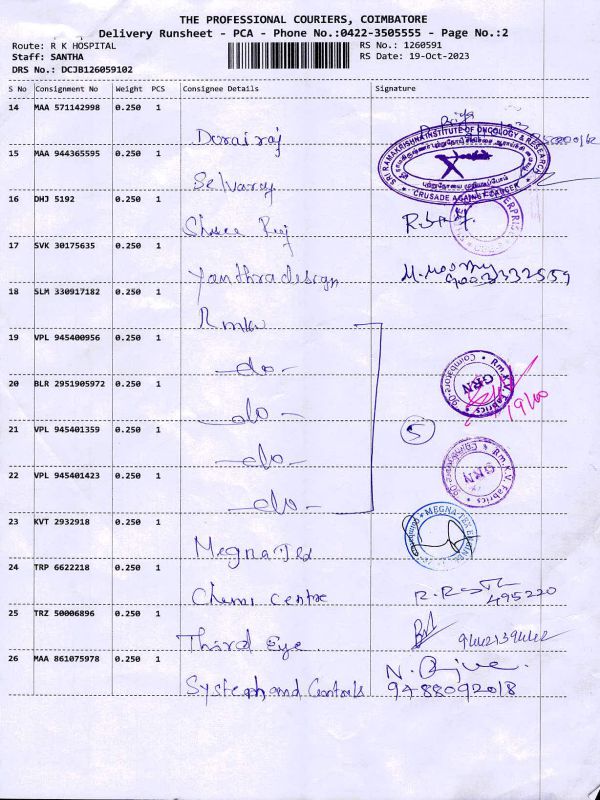 THE PROFESSIONAL COURIERS, COIMBATORE
Delivery Runsheet - PCA - Phone No.:0422-3505555 - Page No.:2
Route: R K HOSPITAL
Staff: SANTHA
DRS No.: DCJB126059102
RS No.: 1260591
RS Date: 19-Oct-2023
S No Consignment No Weight PCS Consignee Details Signature
14 MAA 571142998 0.250 1 Dorairaj
SRI RAMAKRISHNA INSTITUTE OF ONCOLOGY & RESEARCH
CRUSADE AGAINST CANCER
15 MAA 944365595 0.250 1 Selvaraj
16 DHJ 5192 0.250 1 Shree
17 SVK 30175635 0.250 1 Yanthradesign
18 SLM 330917182 0.250 1 Rmkv
19 VPL 945400956 0.250 1 -do-
Rm.K.V. Fabrics Coimbatore GRN
20 BLR 2951905972 0.250 1 -do-
19/10
21 VPL 945401359 0.250 1 -do-
5
22 VPL 945401423 0.250 1 -do-
Rm.K.V. Fabrics GRN
23 KVT 2932918 0.250 1 Megna Tex
MEGNA TEX
24 TRP 6622218 0.250 1 Chemi Centre
495220
25 TRZ 50006896 0.250 1 Third Eye
26 MAA 861075978 0.250 1
9488092018